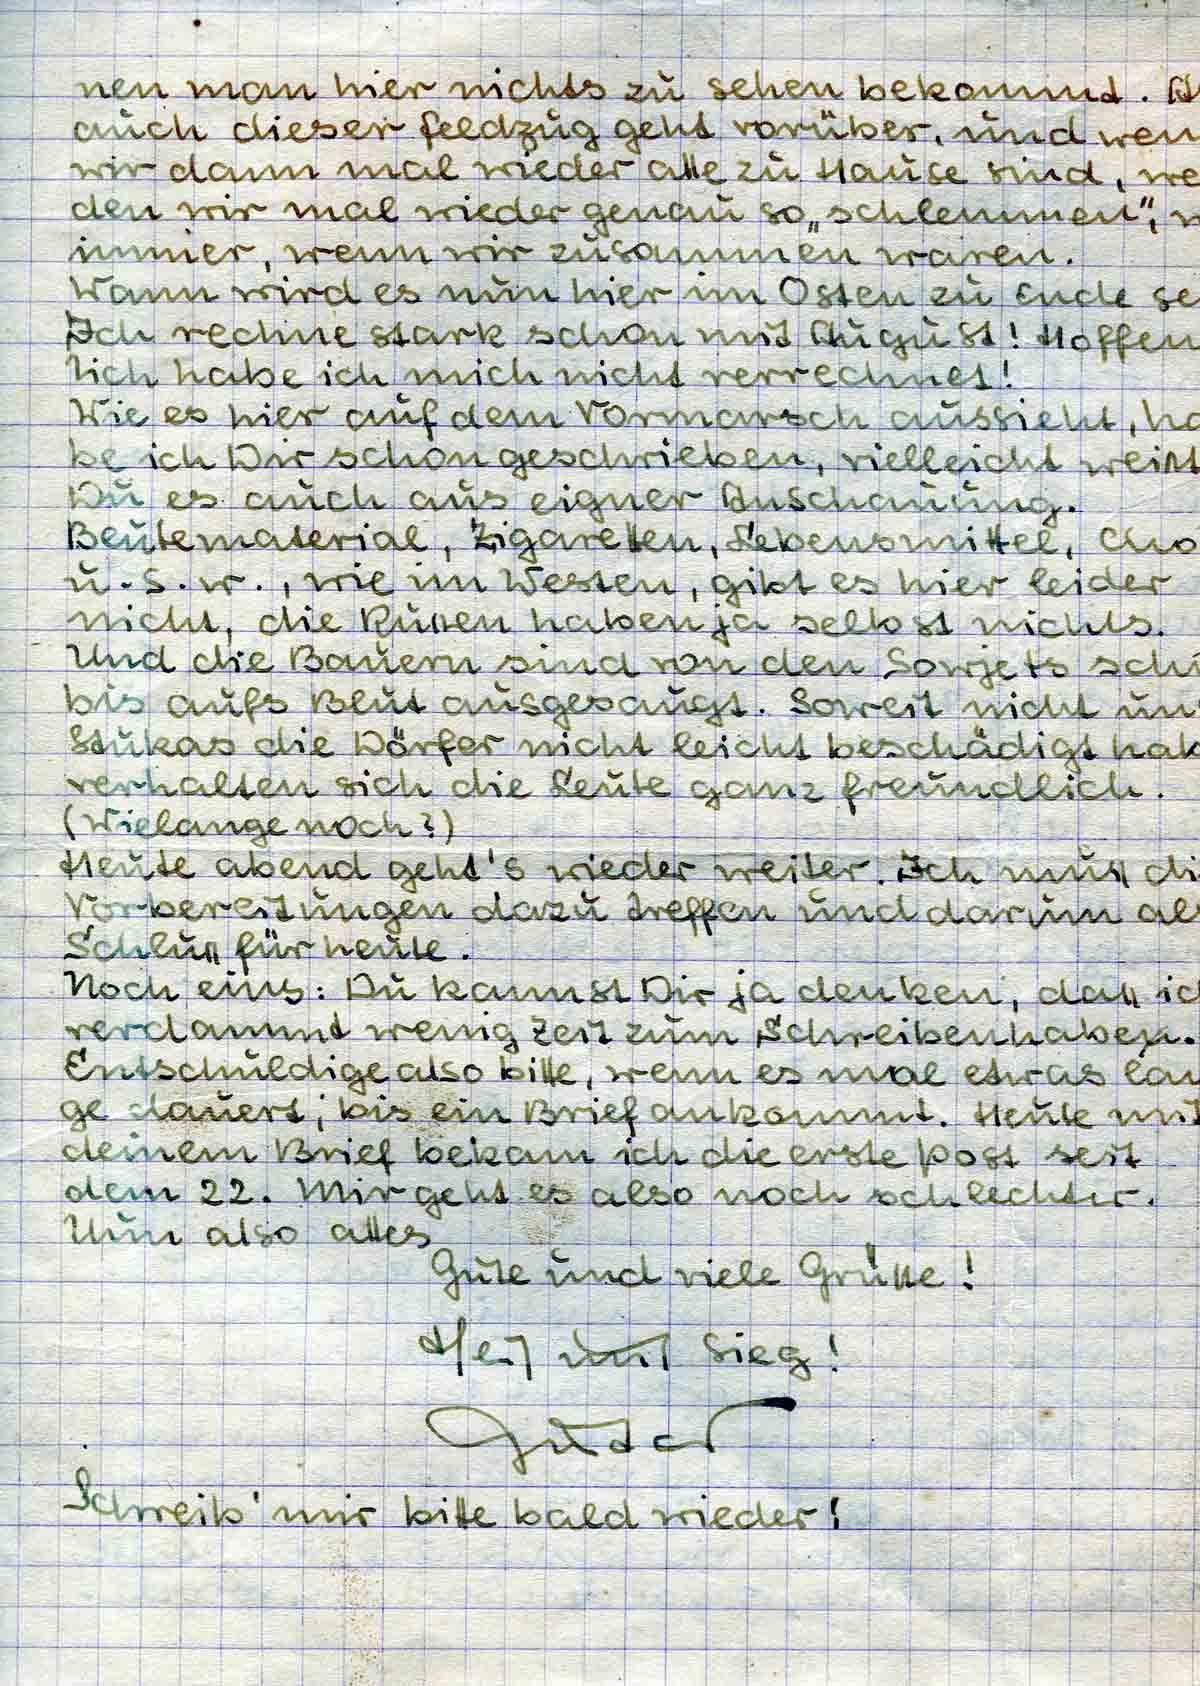 nen man hier nichts zu sehen bekommt. A
auch dieser Feldzug geht vorüber, und wen
wir dann mal wieder alle zu Hause sind, we
den wir mal wieder genau so „schlemmen“, w
immer, wenn wir zusammen waren.
Wann wird es nun hier im Osten zu Ende se
Ich rechne stark schon mit August! Hoffen
lich habe ich mich nicht verrechnet!
Wie es hier auf dem Vormarsch aussieht, ha
be ich Dir schon geschrieben, vielleicht weißt
Du es auch aus eigner Anschauung.
Beutematerial, Zigaretten, Lebensmittel, Cho
u.s.w., wie im Westen, gibt es hier leider
nicht, die Russen haben ja selbst nichts.
Und die Bauern sind von den Sowjets sch
bis aufs Blut ausgesaugt. Soweit nicht un
Stukas die Dörfer nicht leicht beschädigt hab
verhalten sich die Leute ganz freundlich.
(Wielange noch?)
Heute abend geht's wieder weiter. Ich muß di
Vorbereitungen dazu treffen und darum als
Schluß für heute.
Noch eins: Du kannst Dir ja denken, daß ic
verdammt wenig Zeit zum Schreiben haben.
Entschuldige also bitte, wenn es mal etwas lan
ge dauert, bis ein Brief ankommt. Heute mit
deinem Brief bekam ich die erste Post seit
dem 22. Mir geht es also noch schlechter.
Nun also alles
Gute und viele Grüße!
Heil und Sieg!
Schreib' mir bitte bald wieder!